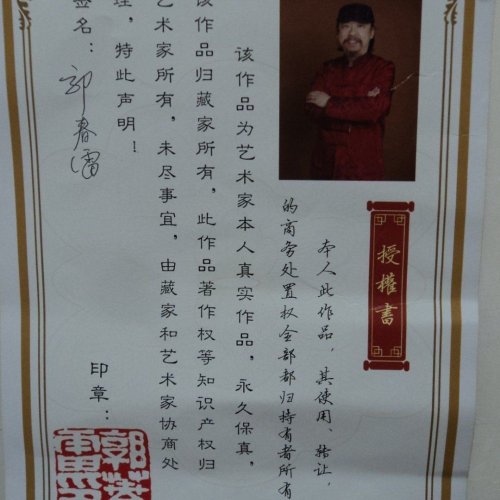 授權書
本人此作品，其使用、转让，
的商务处置权全部都归持有者所有
该作品为艺术家本人真实作品，永久保真，
该作品归藏家所有，此作品著作权等知识产权归
艺术家所有，未尽事宜，由藏家和艺术家协商处
理，特此声明！
签名：郭春雷
印章：